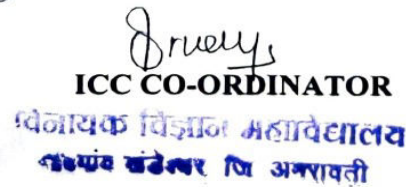 ICC CO-ORDINATOR
विनायक विज्ञान महाविद्यालय
खंडेश्वर जि अमरावती